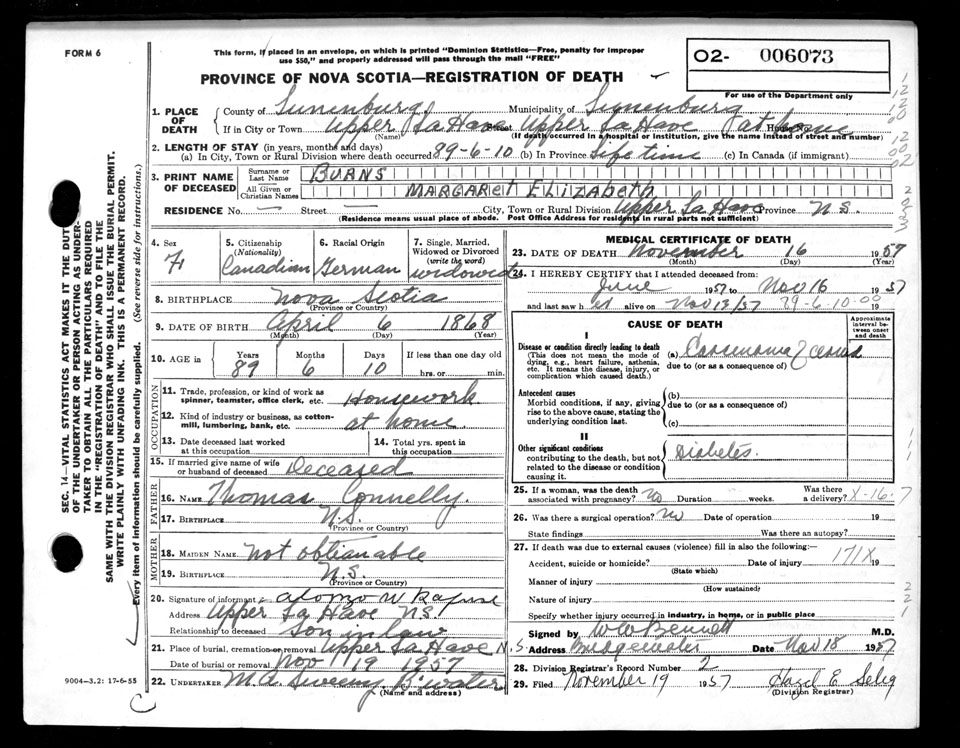 FORM 6
This form, if placed in an envelope, on which is printed "Dominion Statistics—Free, penalty for improper
use $50," and properly addressed will pass through the mail "FREE"
O2- 006073
For use of the Department only
PROVINCE OF NOVA SCOTIA—REGISTRATION OF DEATH
1. PLACE OF DEATH County of Lunenburg Municipality of Lunenburg
If in City or Town Upper La Have (Name) Street Upper La Have at home
(If death occurred in a hospital or institution, give the name instead of street and number)
2. LENGTH OF STAY (in years, months and days)
(a) In City, Town or Rural Division where death occurred 89-6-10 (b) In Province Life time (c) In Canada (if immigrant)
3. PRINT NAME OF DECEASED Surname or Last Name BURNS
All Given or Christian Names MARGARET ELIZABETH
RESIDENCE No. — Street — City, Town or Rural Division Upper La Have Province N.S.
(Residence means usual place of abode. Post Office Address for residents in rural parts not sufficient)
4. Sex F
5. Citizenship (Nationality) Canadian
6. Racial Origin German
7. Single, Married, Widowed or Divorced (write the word) widowed
8. BIRTHPLACE Nova Scotia
(Province or Country)
9. DATE OF BIRTH April 6 1868
(Month) (Day) (Year)
10. AGE in Years 89 Months 6 Days 10 If less than one day old hrs. or min.
OCCUPATION
11. Trade, profession, or kind of work as spinner, teamster, office clerk, etc. Housework.
12. Kind of industry or business, as cotton-mill, lumbering, bank, etc. at home
13. Date deceased last worked at this occupation
14. Total yrs. spent in this occupation
15. If married give name of wife or husband of deceased Deceased
FATHER
16. NAME Thomas Connelly.
17. BIRTHPLACE N.S.
(Province or Country)
MOTHER
18. MAIDEN NAME not obtianable
19. BIRTHPLACE N.S.
(Province or Country)
20. Signature of informant Alonzo W
Address Upper La Have N.S.
Relationship to deceased Son in law
21. Place of burial, cremation or removal Upper La Have N.S.
Date of burial or removal Nov 19 1957
22. UNDERTAKER M.A. Sweeny B'water
(Name and address)
MEDICAL CERTIFICATE OF DEATH
23. DATE OF DEATH November 16 1957
(Month) (Day) (Year)
24. I HEREBY CERTIFY that I attended deceased from:
June 1957 to Nov 16 1957
and last saw her alive on Nov 13/57 19
CAUSE OF DEATH
Approximate interval between onset and death
I
Disease or condition directly leading to death (a) Carcinoma
(This does not mean the mode of dying, e.g., heart failure, asthenia, etc. It means the disease, injury, or complication which caused death.)
due to (or as a consequence of)
Antecedent causes
Morbid conditions, if any, giving rise to the above cause, stating the underlying condition last.
(b)
due to (or as a consequence of)
(c)
II
Other significant conditions
contributing to the death, but not related to the disease or condition causing it.
Diabetes.
25. If a woman, was the death associated with pregnancy? No Duration weeks. Was there a delivery? X-16-7
26. Was there a surgical operation? No Date of operation 19
State findings Was there an autopsy?
27. If death was due to external causes (violence) fill in also the following:—
Accident, suicide or homicide? Date of injury 171X 19
(State which)
Manner of injury
(How sustained)
Nature of injury
Specify whether injury occurred in industry, in home, or in public place
Signed by W W Bennett M.D.
Address Bridgewater Date Nov 18 1957
28. Division Registrar's Record Number 2
29. Filed November 19 1957 Hazel E. Selig
(Division Registrar)
SEC. 14—VITAL STATISTICS ACT MAKES IT THE DUTY
OF THE UNDERTAKER OR PERSON ACTING AS UNDER-
TAKER TO OBTAIN ALL THE PARTICULARS REQUIRED
IN THE "REGISTRATION OF DEATH" AND TO FILE THE
SAME WITH THE DIVISION REGISTRAR WHO SHALL ISSUE THE BURIAL PERMIT.
WRITE PLAINLY WITH UNFADING INK. THIS IS A PERMANENT RECORD.
Every item of information should be carefully supplied. (See reverse side for instructions.)
9004-3.2: 17-6-55